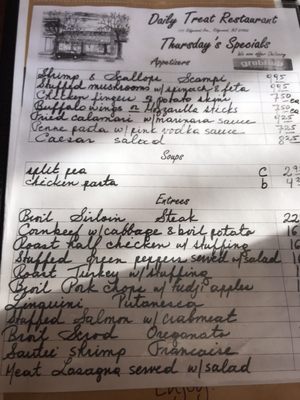 Daily Treat Restaurant
Thursday's Specials
We are offer Delivery
GRUBHUB
Appetizers
Shrimp & Scallops Scampi 995
Stuffed mushrooms w/spinach & feta 995
Chicken fingers & potato skins 750
Buffalo wings or Mozzarella sticks 750 ea
Fried calamari w/marinara sauce 925
Penne pasta w/pink vodka sauce 725
Caesar salad 825
Soups
split pea C
chicken pasta b
Entrees
Broil Sirloin Steak 22
Cornbeef w/cabbage & boil potato 16
Roast half chicken w/stuffing 16
Stuffed green peppers served w/salad 16
Roast Turkey w/stuffing
Broil Pork Chops w/fudji apples
Linguini Putanesca
Stuffed Salmon w/crabmeat
Broil Scrod Oreganato
Sauteé shrimp Francaise
Meat Lasagna served w/salad
Enjoy